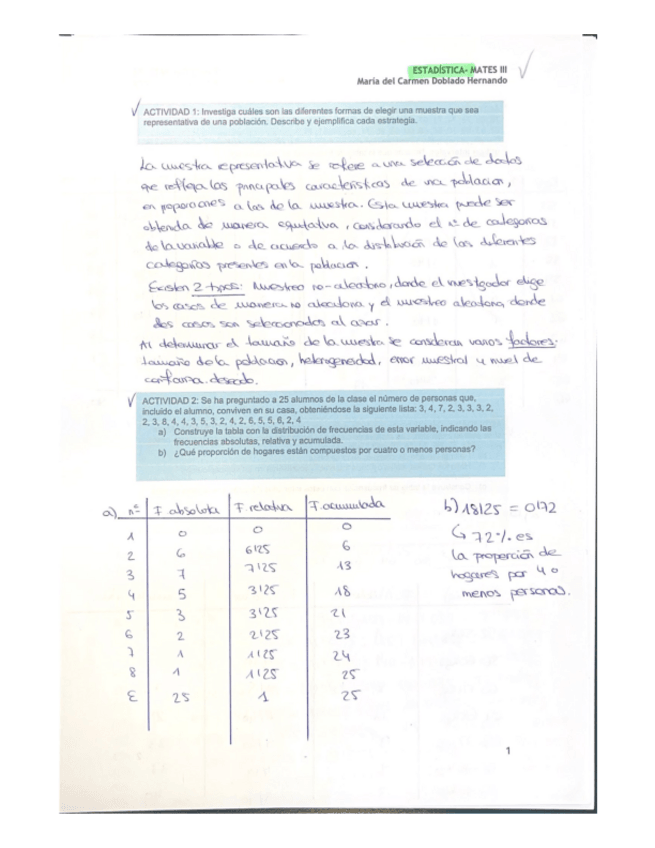 ESTADÍSTICA- MATES III
María del Carmen Doblado Hernando
ACTIVIDAD 1: Investiga cuáles son las diferentes formas de elegir una muestra que sea
representativa de una población. Describe y ejemplifica cada estrategia.
La muestra representativa se refiere a una selección de datos
que refleja las principales características de una población,
en proporciones a las de la muestra. Esta muestra puede ser
obtenida de manera equitativa, considerando el nº de categorías
de la variable o de acuerdo a la distribución de las diferentes
categorías presentes en la población.
Existen 2 tipos: Muestreo no-aleatorio, donde el investigador elige
los casos de manera no aleatoria y el muestreo aleatorio, donde
los casos son seleccionados al azar.
Al determinar el tamaño de la muestra se consideran varios factores:
tamaño de la población, heterogeneidad, error muestral y nivel de
confianza deseado.
ACTIVIDAD 2: Se ha preguntado a 25 alumnos de la clase el número de personas que,
incluido el alumno, conviven en su casa, obteniéndose la siguiente lista: 3, 4, 7, 2, 3, 3, 3, 2,
2, 3, 8, 4, 4, 3, 5, 3, 2, 4, 2, 6, 5, 5, 6, 2, 4
a) Construye la tabla con la distribución de frecuencias de esta variable, indicando las
frecuencias absolutas, relativa y acumulada.
b) ¿Qué proporción de hogares están compuestos por cuatro o menos personas?
a) nº F absoluta F. relativa F. acumulada
1 0 0 0
2 6 6/25 6
3 7 7/25 13
4 5 3/25 18
5 3 3/25 21
6 2 2/25 23
7 1 1/25 24
8 1 1/25 25
Σ 25 1 25
b) 18/25 = 0'72
↳ 72% es
la proporción de
hogares por 4 o
menos personas.
1